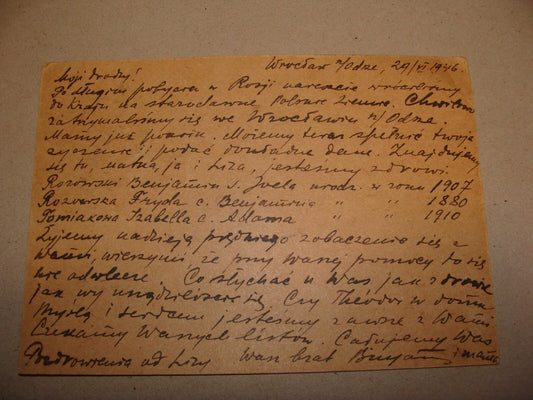 Wrocław n/Odze, 29/VI 1946.
Moji drodzy!
Po długim pobycie w Rosji nareszcie wróciliśmy
do kraju na starodawne, Polskie Ziemie. Chwilowo
zatrzymaliśmy się we Wrocławiu n/Odra.
Mamy już pokoik. Możemy teraz spełnić twoje
życzenie i podać dokładne dane. Znajdujemy
się tu, mama, ja i Liza, jesteśmy zdrowi
Rozowski Benjamin s. Joela urodz. w roku 1907
Rozowska Fryda c. Benjamina " " 1880
Tomiakowa Izabella c. Adama " " 1910
Żyjemy nadzieją prędkiego zobaczenia się z
Wami, wierzymy że przy Waszej pomocy to się
nie odwlecze. Co słychać u Was, jak zdrowie
jak wy urządziliście się, Czy Theodor w domu
Myślą i sercem jesteśmy zawsze z Wami
Czekamy Waszych listów. Całujemy Was
Pozdrowienia od Lizy Wasz brat Benjamin i mama